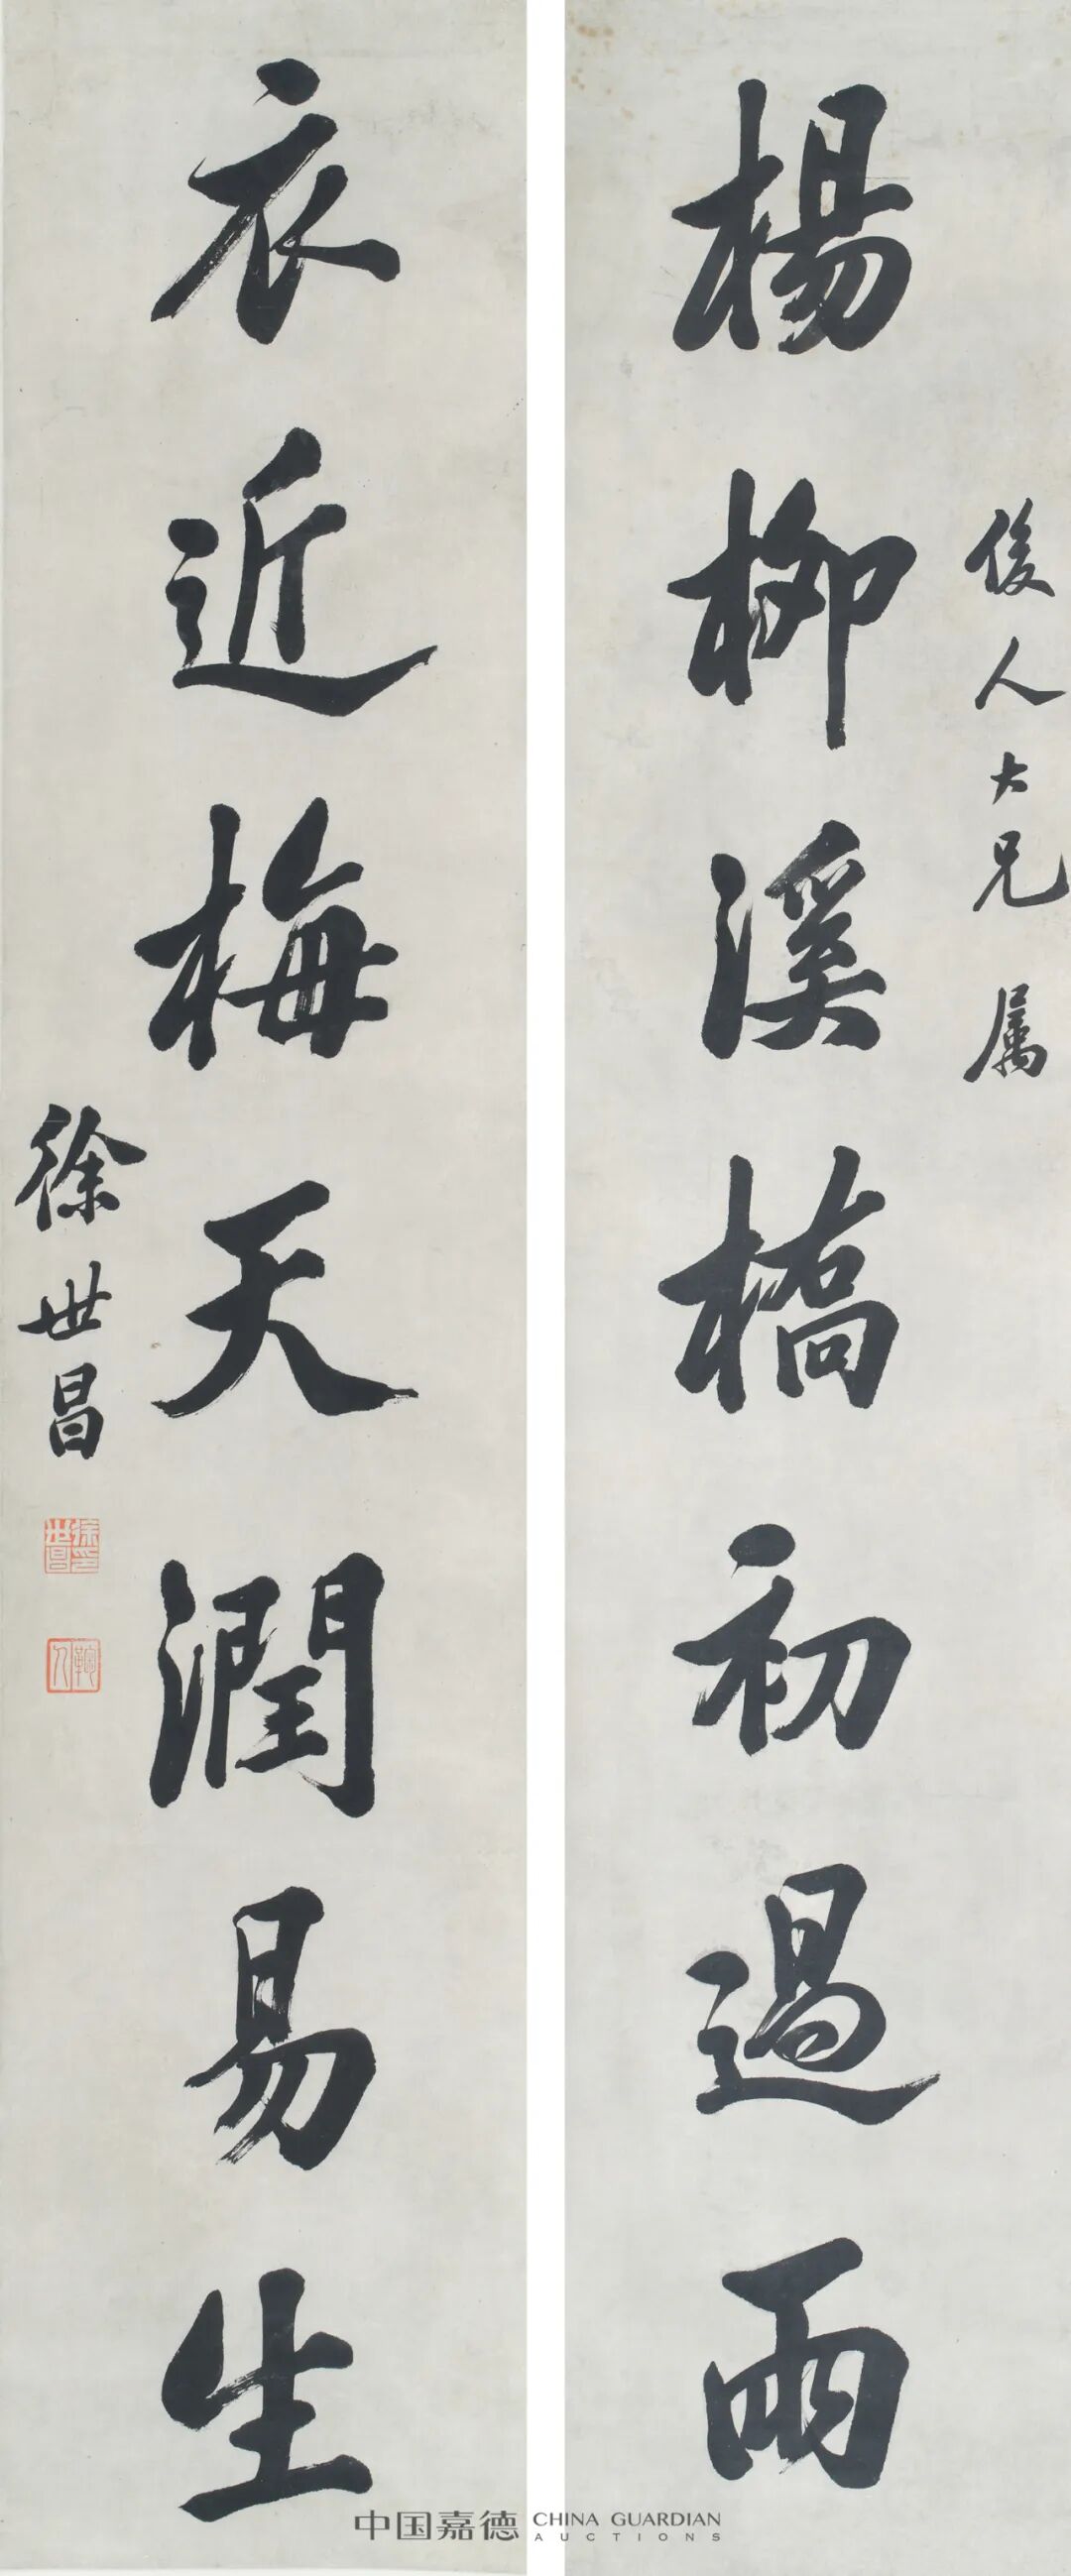 俊人大兄 属
楊柳溪橋初過雨
衣近梅天潤易生
徐世昌
徐世昌印
鞠人
中国嘉德 CHINA GUARDIAN
AUCTIONS